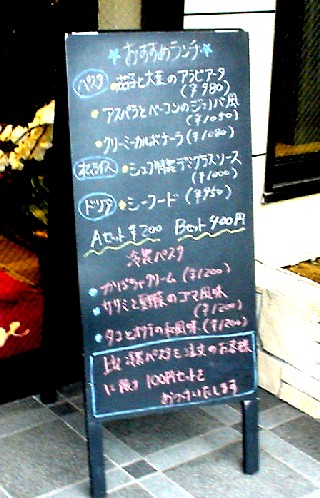 ★おすすめランチ★
パスタ ・茄子と大葉のアラビアータ
(¥980)
・アスパラとベーコンのジェノバ風
(¥1050)
・クリーミーカルボナーラ(¥1080)
オムライス ・シェフ特製デミグラスソース
(¥1000)
ドリア ・シーフード (¥950)
Aセット¥200 Bセット400円
冷製パスタ
・かぼちゃクリーム (¥1200)
・ササミと野菜のゴマ風味
(¥1200)
・タコとオクラの和風味(¥1200)
冷製パスタご注文のお客様
に限り 100円セットを
おつけいたします